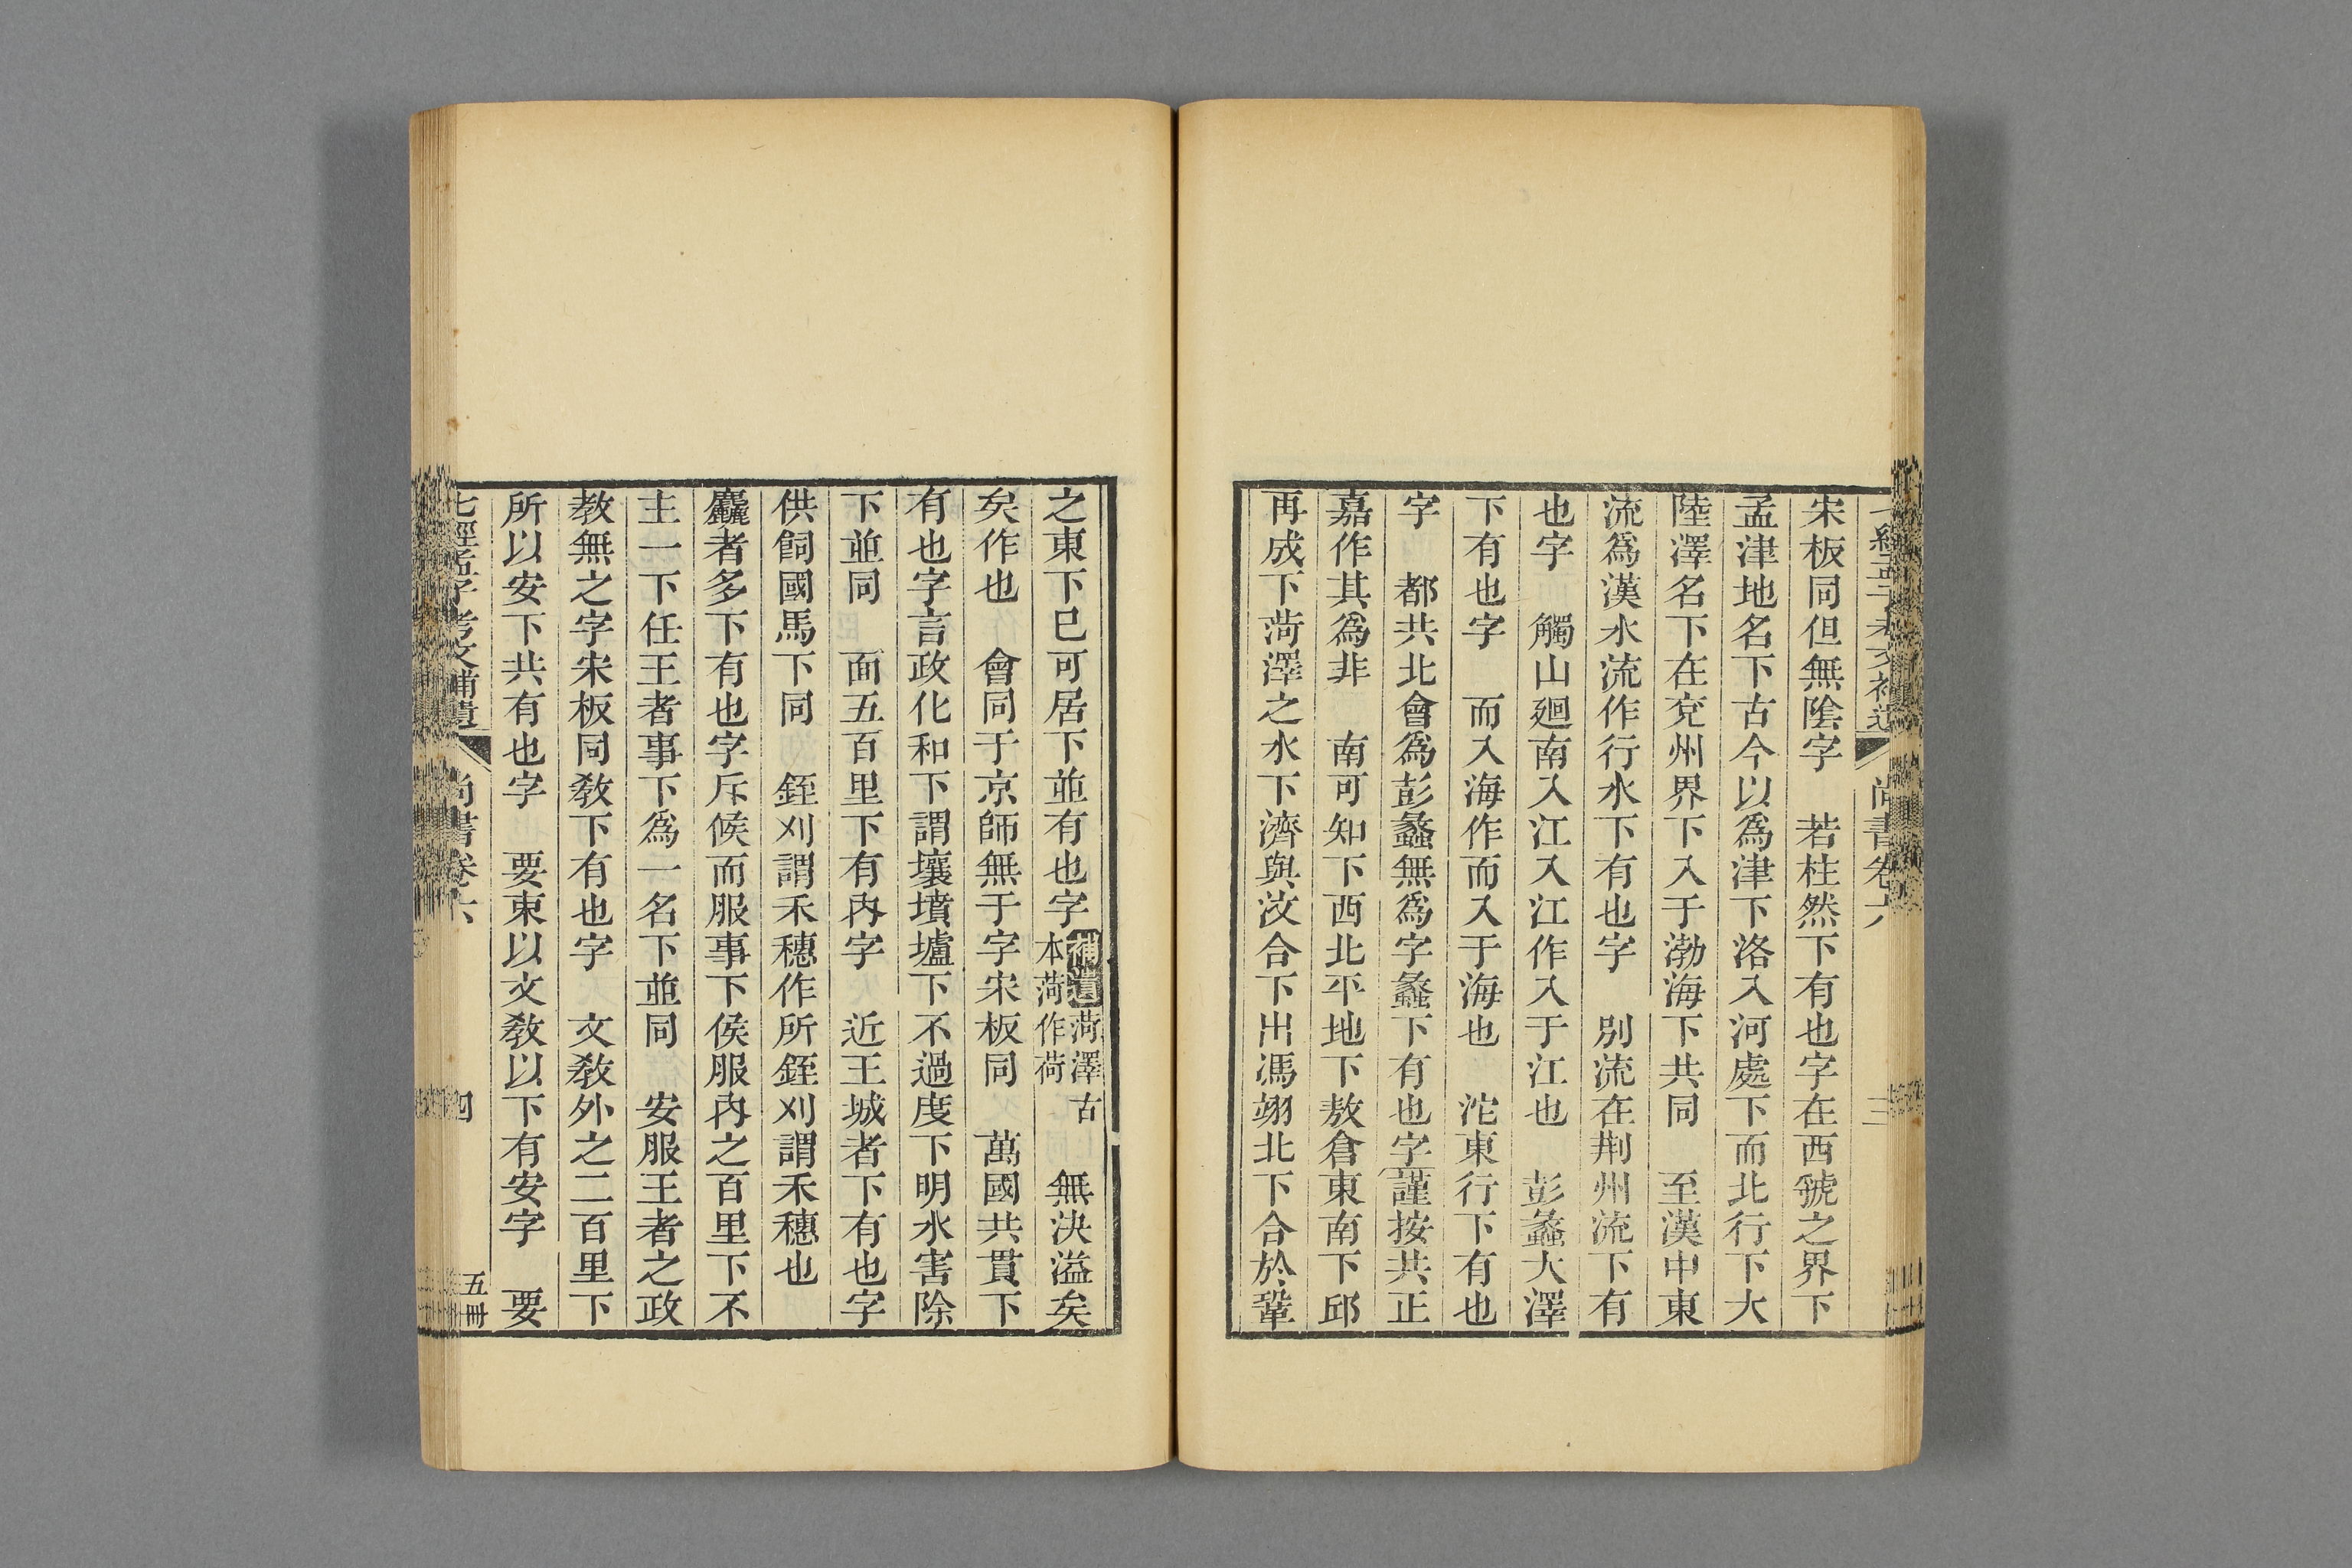 宋板同但無隂字　若柱然下有也字在西虢之界下
孟津地名下古今以爲津下洛入河處下而北行下大
陸澤名下在兗州界下入于渤海下共同　至漢中東
流爲漢水流作行水下有也字　別流在荆州流下有
也字　觸山廻南入江入江作入于江也　彭蠡大澤
下有也字　而入海作而入于海也　沱東行下有也
字　都共北會爲彭蠡無爲字蠡下有也字謹按共正
嘉作其爲非　南可知下西北平地下敖倉東南下邱
再成下菏澤之水下濟與汶合下出馮翊北下合於鞏
之東下已可居下並有也字補遺菏澤古本菏作荷　無決溢矣
矣作也　會同于京師無于字宋板同　萬國共貫下
有也字言政化和下謂壤墳壚下不過度下明水害除
下並同　面五百里下有內字　近王城者下有也字
供飼國馬下同　銍刈謂禾穗作所銍刈謂禾穗也
麤者多下有也字斥候而服事下侯服內之百里下不
主一下任王者事下爲一名下並同　安服王者之政
教無之字宋板同教下有也字　文教外之二百里下
所以安下共有也字　要束以文教以下有安字　要
七經孟子考文補遺　尚書卷六　四　五冊